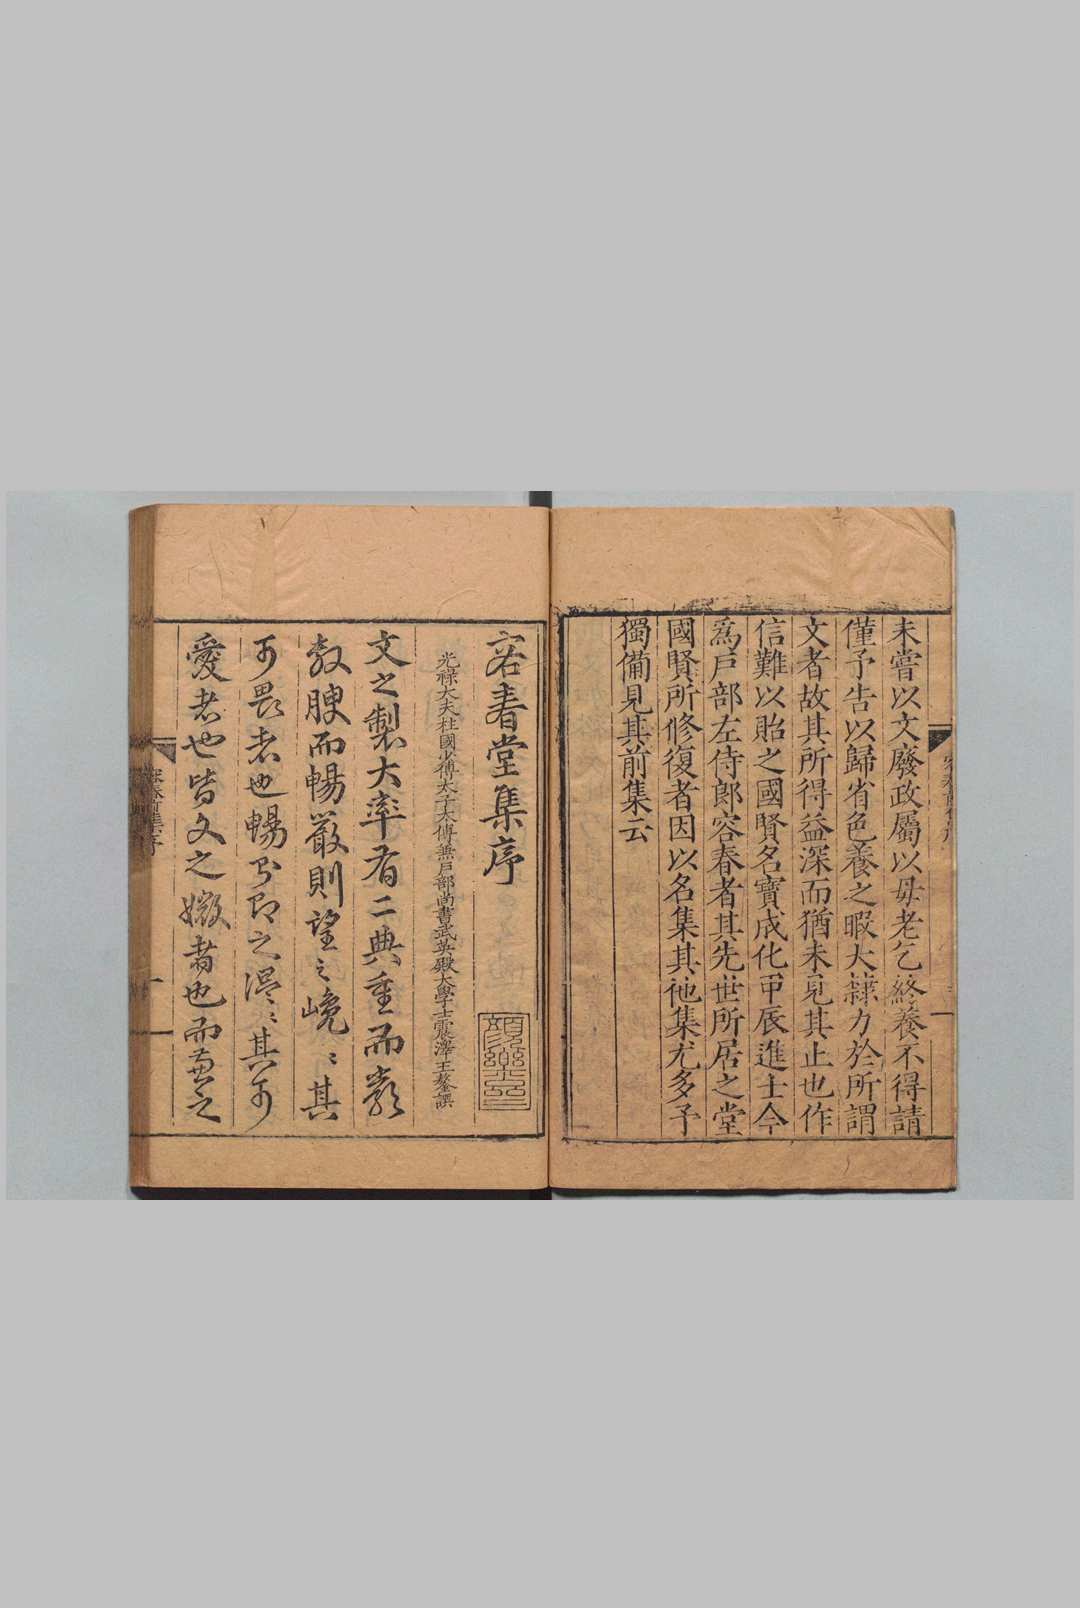 未嘗以文廢政屬以毋老乞終養不得請
僅予告以歸省色養之暇大肆力於所謂
文者故其所得益深而猶未見其止也作
信難以貽之國賢名寳成化甲辰進士今
爲戶部左侍郎容春者其先世所居之堂
國賢所修復者因以名集其他集尤多予
獨備見其前集云
容春堂集序
光祿大夫柱國少傅太子太傅兼戶部尚書武英殿大學士震澤王鏊譔
文之製大率有二典重而嚴
敦腴而暢嚴則望之〻其
可畏者也暢則即之溫〻其可
愛者也皆文之媺者也而兼之
容春前集序
一